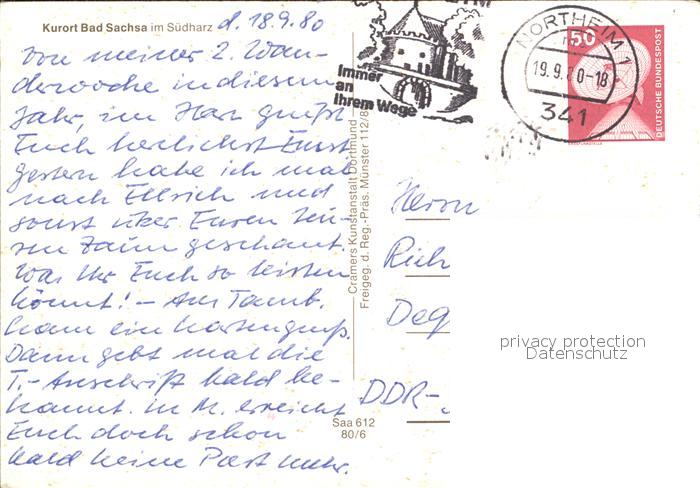 Kurort Bad Sachsa im Südharz d. 18.9.80
Von meiner 2. Wan-
derwoche in diesem
Jahr, im Harz grüßt
Euch herzlichst Ernst
gestern habe ich mal
nach Ellrich und
sonst über Euren
Zaun geschaut.
Was Ihr Euch so leisten
könnt! – Aus
kam ein Kartengruß.
Dann gebt mal die
T.-Anschrift bald be-
kannt. in M. erreicht
Euch doch schon
bald keine Post mehr.
Immer
an
Ihrem Wege
NORTHEIM 1
19.9.80-18
341
50
DEUTSCHE BUNDESPOST
Cramers Kunstanstalt Dortmund
Freigeg. d. Reg.-Präs. Münster 112/8
Herrn
Rich
Deg
DDR-
privacy protection
Datenschutz
Saa 612
80/6